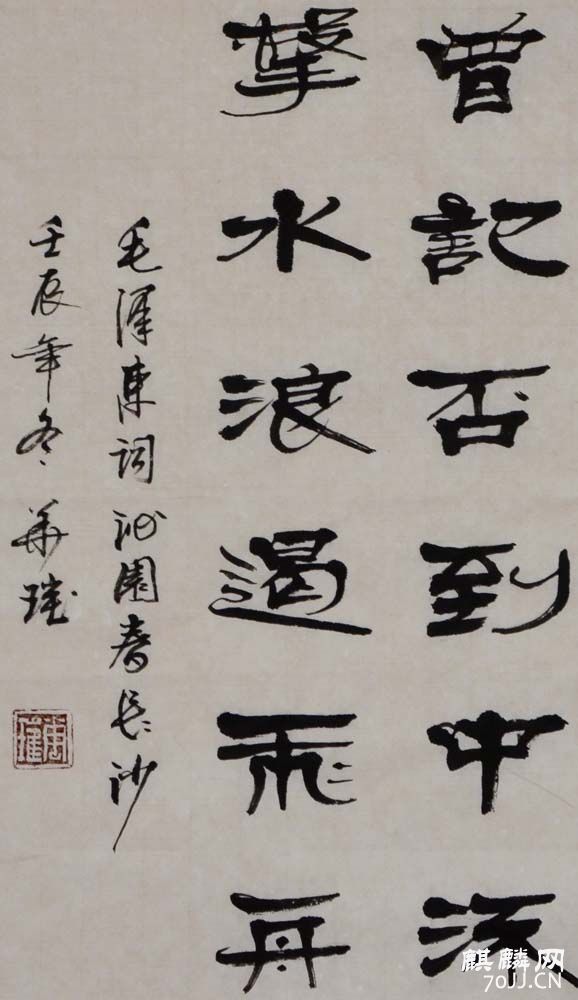 曾記否到中流
擊水浪遏飛舟
毛澤東詞沁園春長沙
壬辰年冬
麒麟网
70JJ.CN